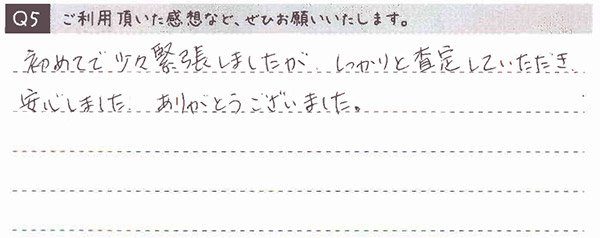 Q5 ご利用頂いた感想など、ぜひお願いいたします。
初めてで少々緊張しましたが、しっかりと査定していただき、
安心しました。ありがとうございました。